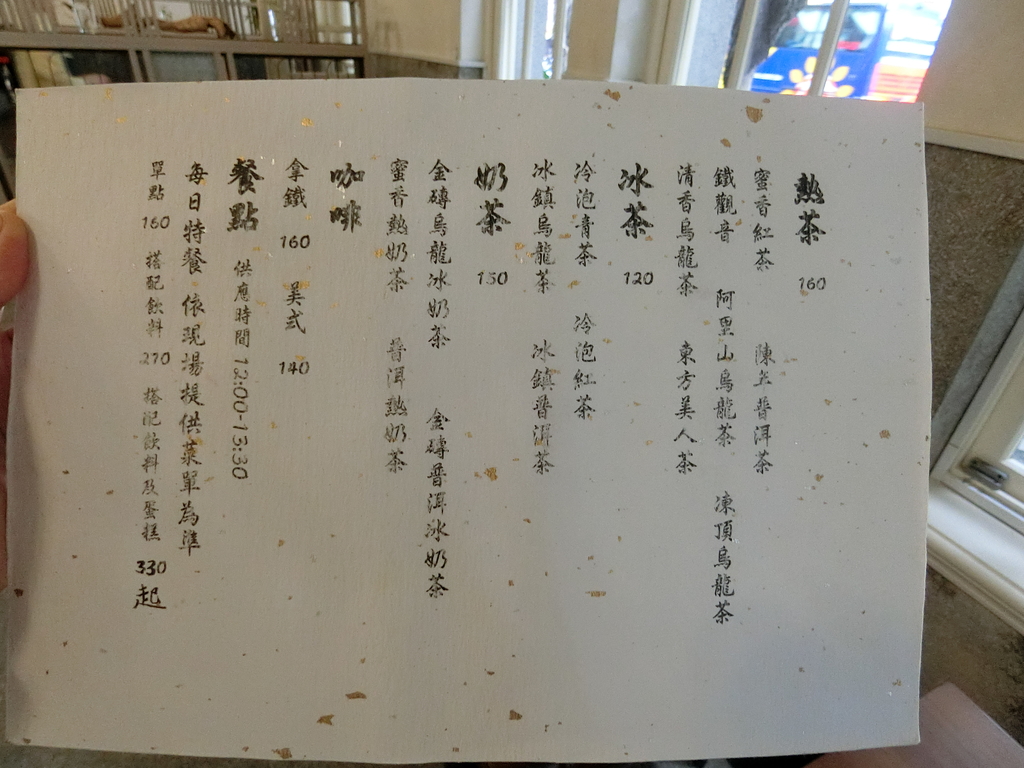 熱茶 160
蜜香紅茶 陳年普洱茶
鐵觀音 阿里山烏龍茶 凍頂烏龍茶
清香烏龍茶 東方美人茶
冰茶 120
冷泡青茶 冷泡紅茶
冰鎮烏龍茶 冰鎮普洱茶
奶茶 150
金磚烏龍冰奶茶 金磚普洱冰奶茶
蜜香熱奶茶 普洱熱奶茶
咖啡
拿鐵 160 美式 140
餐點 供應時間 12:00-13:30
每日特餐 依現場提供菜單為準
單點 160 搭配飲料 270 搭配飲料及蛋糕 330 起